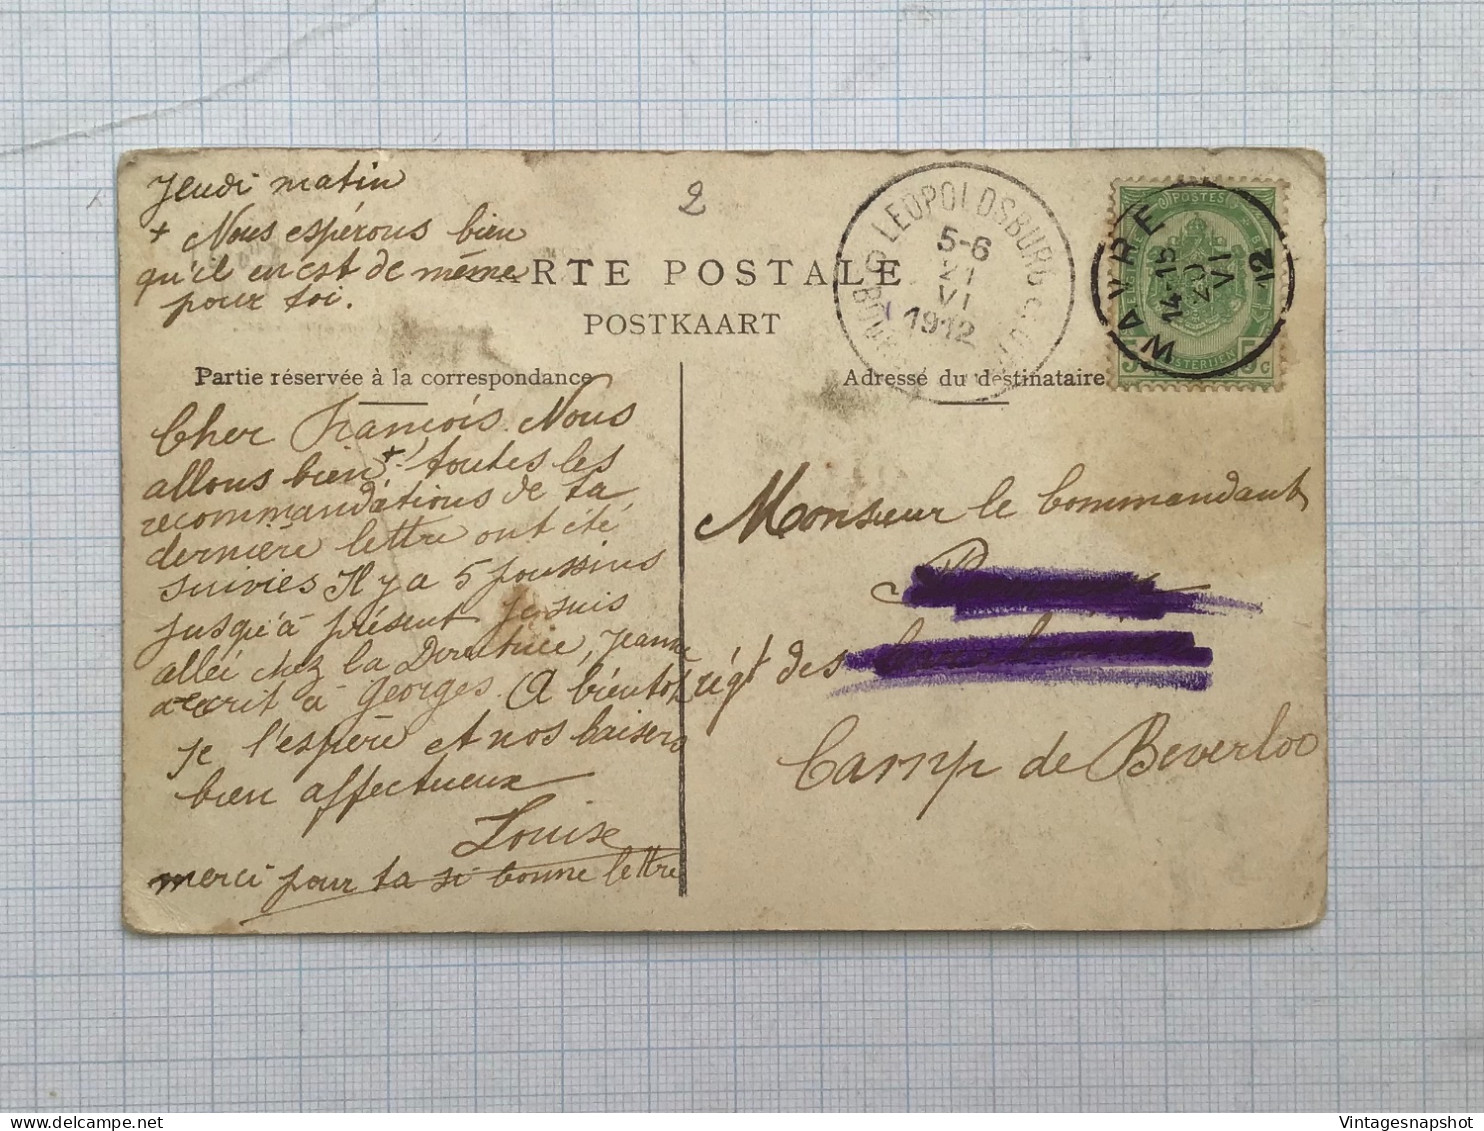 Jeudi matin
+ Nous espérons bien
qu'il en est de même
pour toi.
2
CARTE POSTALE
POSTKAART
LEOPOLDSBURG
5-6
VI
1912
WAVRE
14-15
20
VI
12
POSTES
5 c
Partie réservée à la correspondance
Adresse du destinataire
Cher François. Nous
allons bien +! toutes les
recommandations de ta
dernière lettre ont été
suivies Il y a 5 poussins
jusqu'à présent Je suis
allée chez la Directrice, Jeanne
a écrit à Georges. A bientôt
je l'espère et nos baisers
bien affectueux
Louise
merci pour ta si bonne lettre
Monsieur le Commandant
régt des
Camp de Beverloo
VintagesnapShot